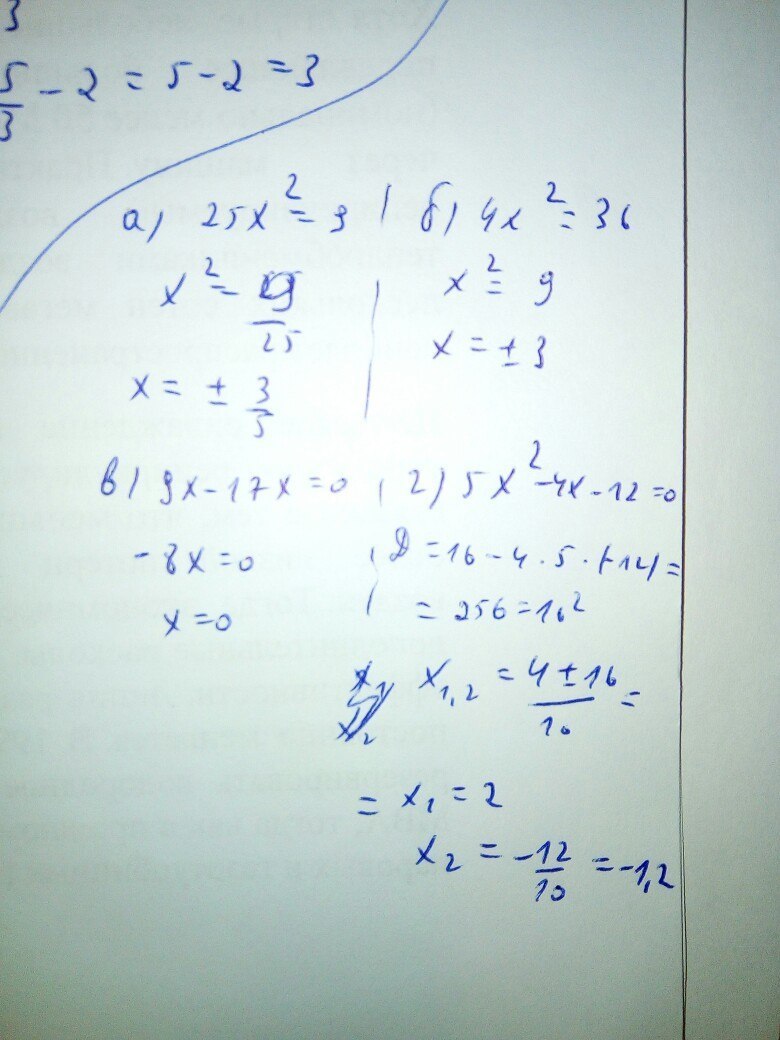 3
5/3 - 2 = 5 - 2 = 3
а) 25x² = 9
x² = 9/25
x = ± 3/5
б) 4x² = 36
x² = 9
x = ± 3
в) 9x - 17x = 0
- 8x = 0
x = 0
г) 5x² - 4x - 12 = 0
D = 16 - 4 · 5 · (-12) =
= 256 = 16²
x₁,₂ = 4 ± 16/10 =
= x₁ = 2
x₂ = -12/10 = -1,2